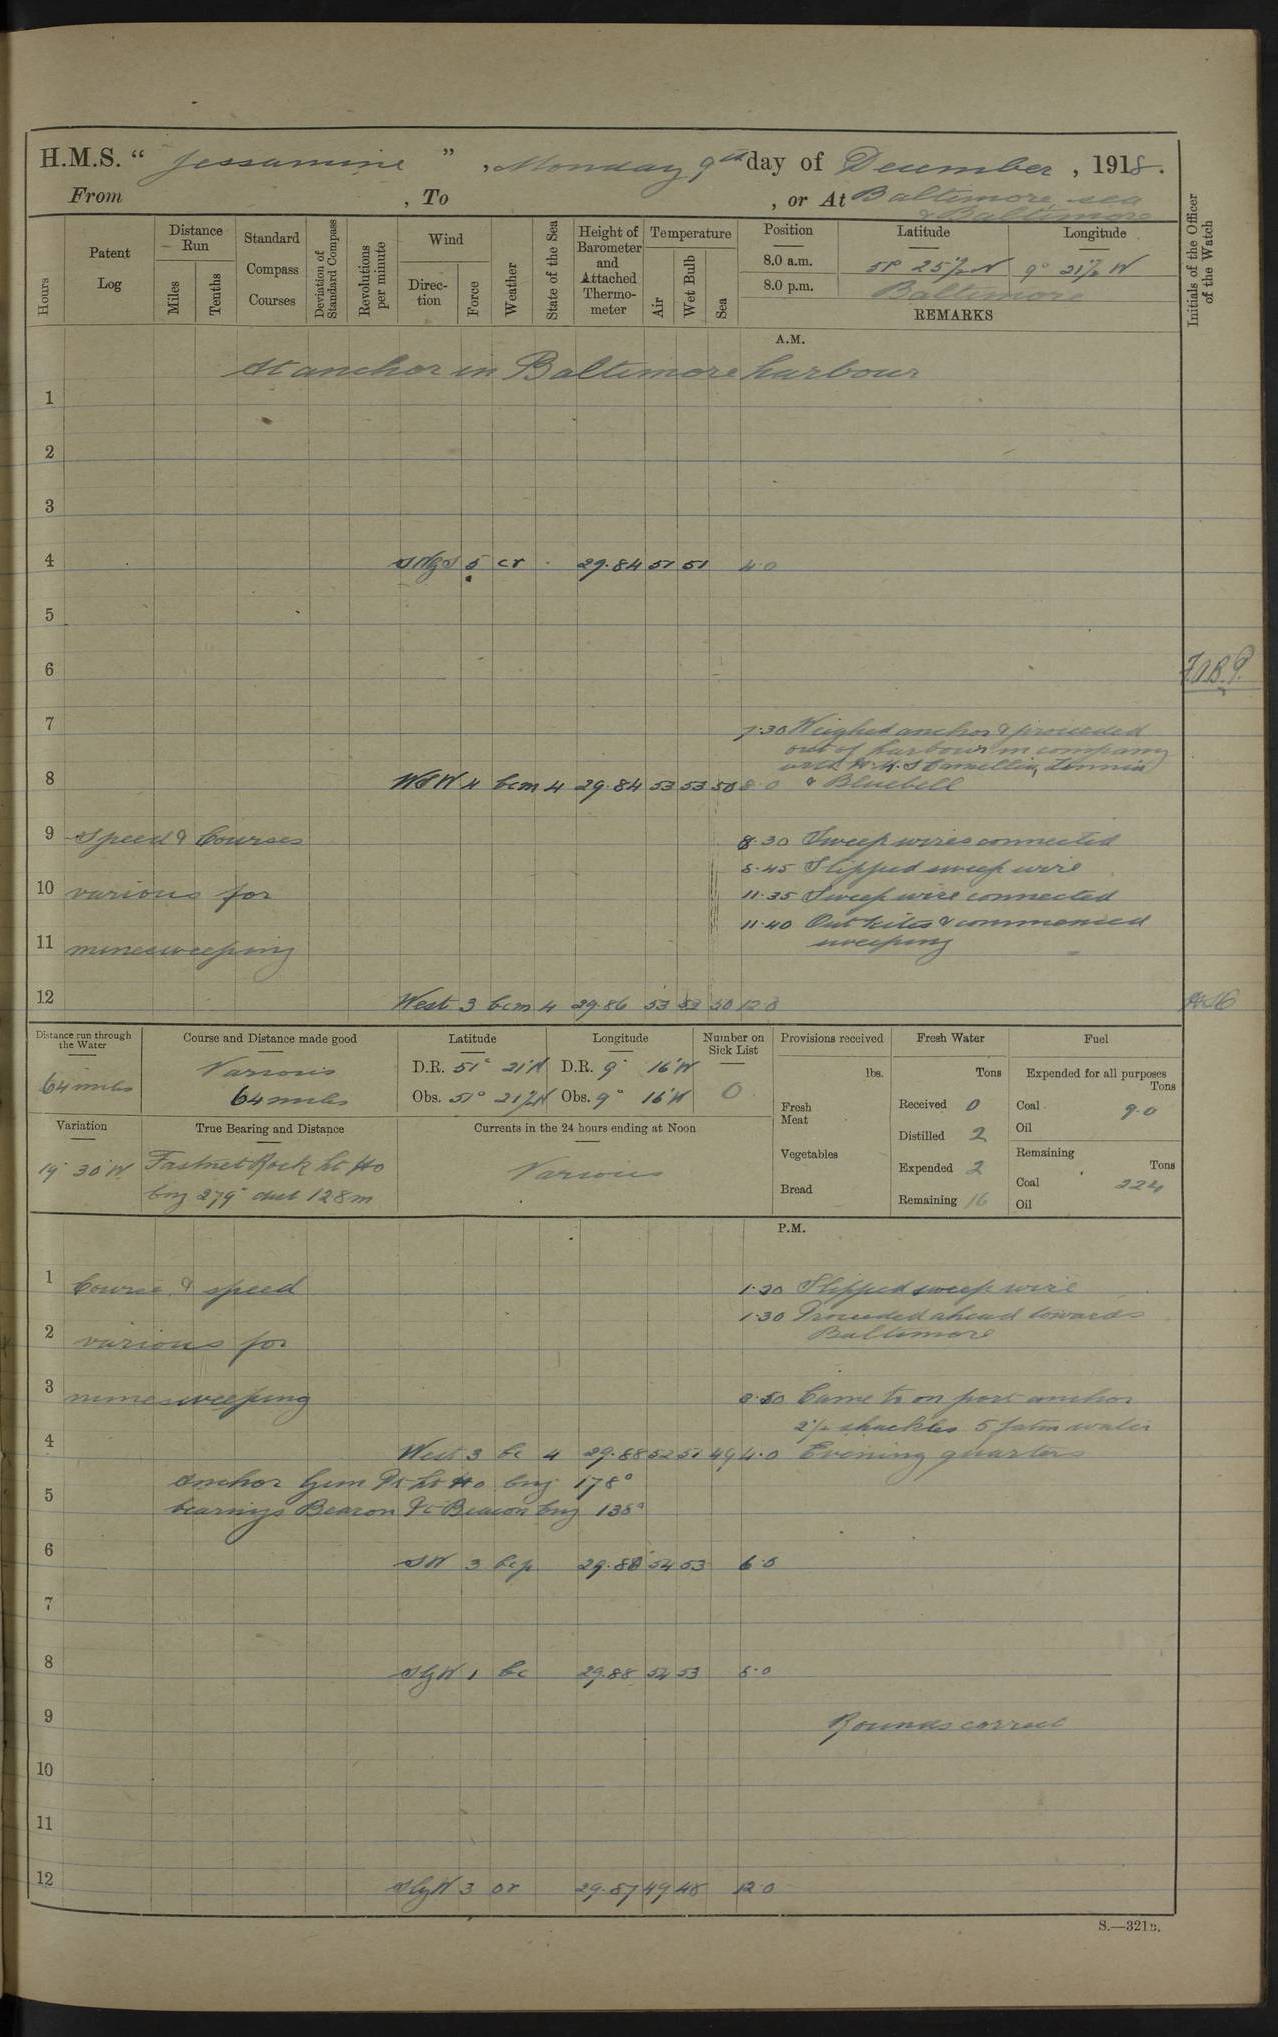 H.M.S. “ Jessamine ” , Monday 9th day of December , 1918.
From , To , or At Baltimore, sea
& Baltimore
Hours
Patent Log
Distance Run
Miles
Tenths
Standard Compass Courses
Deviation of Standard Compass
Revolutions per minute
Wind
Direction
Force
Weather
State of the Sea
Height of Barometer and Attached Thermometer
Temperature
Air
Wet Bulb
Sea
Position
8.0 a.m.
8.0 p.m.
Latitude
51° 25½'N
Longitude
9° 21½'W
Baltimore
REMARKS
Initials of the Officer of the Watch
A.M.
At anchor in Baltimore harbour
1
2
3
4 5 cr 29.84 51 51 4.0
5
6
F.A.B.P.
7 7.30 Weighed anchor & proceeded
out of harbour in company
with H.M.S Camellia,
8 WSW 4 bcm 4 29.84 53 53 50 8.0 & Bluebell
9 Speed & Courses 8.30 Sweep wires connected
8.45 Slipped sweep wire
10 various for 11.35 Sweep wire connected
11.40 Out kites & commenced
11 minesweeping sweeping
12 West 3 bcm 4 29.86 53 52 50 12.0
Distance run through the Water
64 miles
Course and Distance made good
Various
64 miles
Latitude
D.R. 51° 21'N
Obs. 51° 21½'N
Longitude
D.R. 9° 16'W
Obs. 9° 16'W
Number on Sick List
0
Provisions received
lbs.
Fresh Meat
Vegetables
Bread
Fresh Water
Tons
Received 0
Distilled 2
Expended 2
Remaining 16
Fuel
Expended for all purposes
Tons
Coal 9.0
Oil
Remaining
Tons
Coal 224
Oil
Variation
19° 30'W
True Bearing and Distance
Fastnet Rock Lt Ho
brg 279° dist 12.8m
Currents in the 24 hours ending at Noon
Various
P.M.
1 Course & speed 1.20 Slipped sweep wire
1.30 Proceeded ahead towards
2 various for Baltimore
3 minesweeping 3.50 Came to on port anchor
2½ shackles 5 fatm water
4 West 3 bc 4 29.88 52 51 49 4.0 Evening quarters
anchor Pt Lt Ho brg 178°
5
bearings Beacon Pt Beacon brg 138°
6 SW 3 bcp 29.88 54 53 6.0
7
8 SbyW 1 bc 29.88 54 53 8.0
9 Rounds correct
10
11
12 SbyW 3 or 29.87 49 48 12.0
S.—321B.